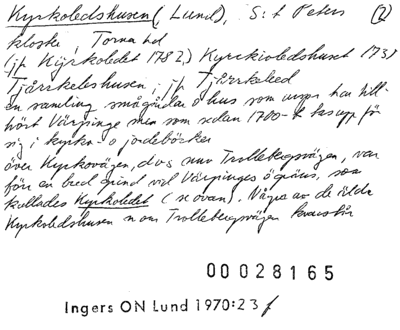 Kyrkoledshusen (Lund), S:t Peters (2)
kloster, Torna hd
(jfr Kyrkoledet 1782,) Kyrckioledshuset 173
Tjärrkeleshusen, jfr Tjärrkeled
en samling smågårdar o hus som urspr har till-
hört Värpinge men som sedan 1700-t tas upp för
sig i kyrko- o jordeböcker
över Kyrkovägen, dvs nuv Trollebergsvägen, var
förr en bred grind vid Värpinges ögräns, som
kallades Kyrkoledet (se ovan). Några av de äldre
Kyrkoledshusen n om Trollebergsvägen kvarstår
00028165
Ingers ON Lund 1970:23 f